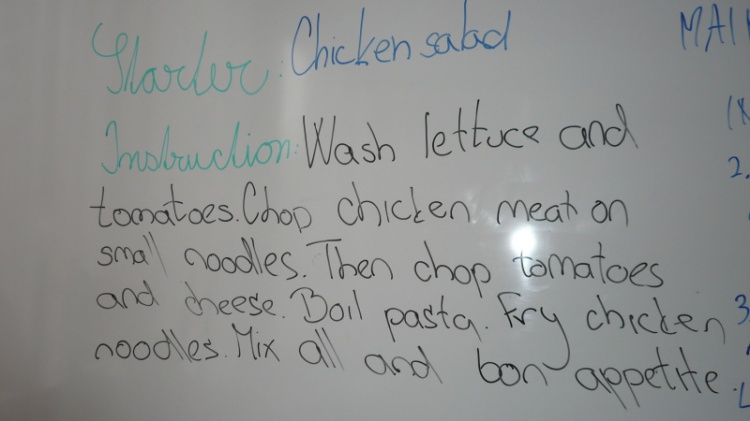 Starter: Chicken salad
Instruction: Wash lettuce and
tomatoes. Chop chicken meat on
small noodles. Then chop tomatoes
and cheese. Boil pasta. Fry chicken
noodles. Mix all and bon appetite.
MAI
2.
3